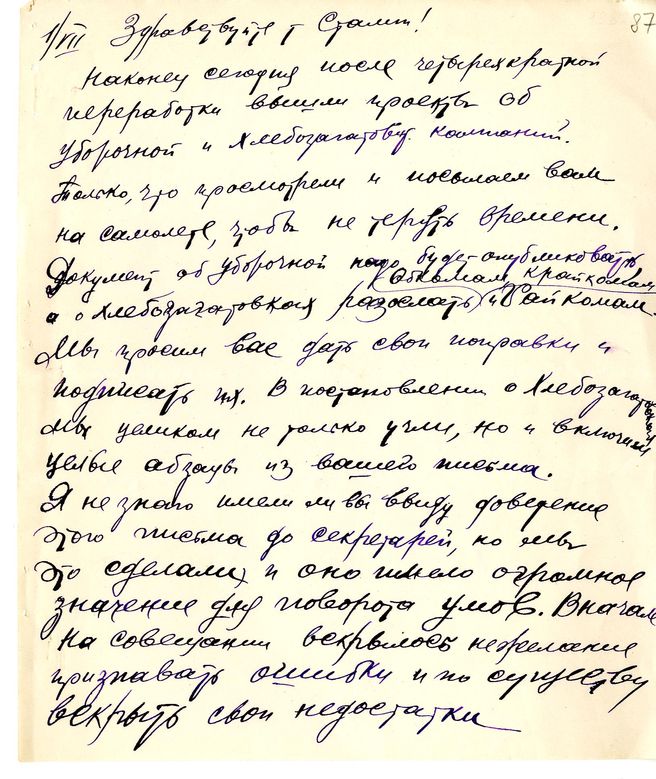 87
1/VII Здравствуйте т Сталин!
Наконец сегодня после четырехкратной
переработки вышли проекты об
уборочной и Хлебозагатов. кампаний.
Только, что просмотрели и посылаем вам
на самолете, чтобы не терять времени.
Документ об уборочной надо будет опубликовать
обкомам, крайкомам
а о хлебозагатовках разослать и Райкомам.
Мы просим вас дать свои поправки и
подписать их. В постановлении о Хлебозагатовках
мы целиком не только учли, но и включили
целые абзацы из вашего письма.
Я не знаю имели ли вы ввиду доведение
этого письма до секретарей, но мы
это сделали, и оно имело огромное
значение для поворота умов. Вначале
на совещании вскрылось нежелание
признавать ошибки и по существу
вскрыть свои недостатки